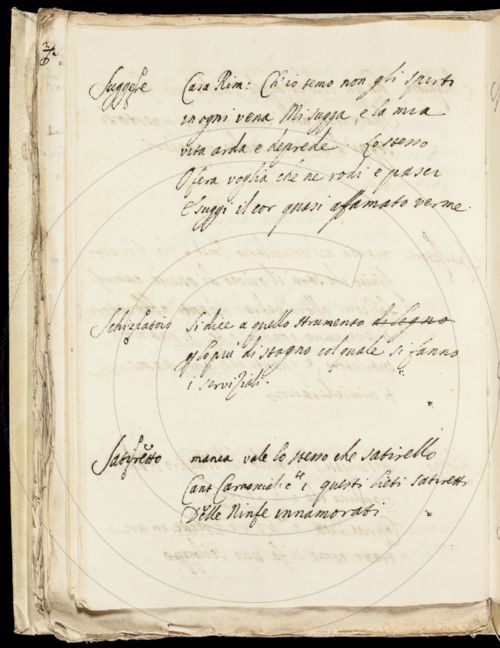 Suggere Casa Rim: Ch'io temo non gli spirti
in ogni vena Mi sugga, e la mia
vita arda e deprede. Lo stesso
O fera voglia che ne rodi e pasci
E suggi il cor quasi affamato verme.
Schizzatoio Si dice a quello strumento di legno
p lo piu di stagno col quale si fanno
i serviziali.
Satyretto manca vale lo stesso che satirello
Cant Carnascial: e i questi lieti satiretti
Delle Ninfe innamorati